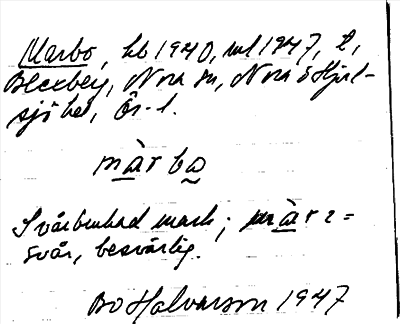 Marbo, hb 1940, ml 1947, t,
Blexberg, Nora sn, Nora o Hjul-
sjö hd, Ör. l.
màrba
Svårbrukad mark; màr =
svår, besvärlig.
Bo Halvarson 1947